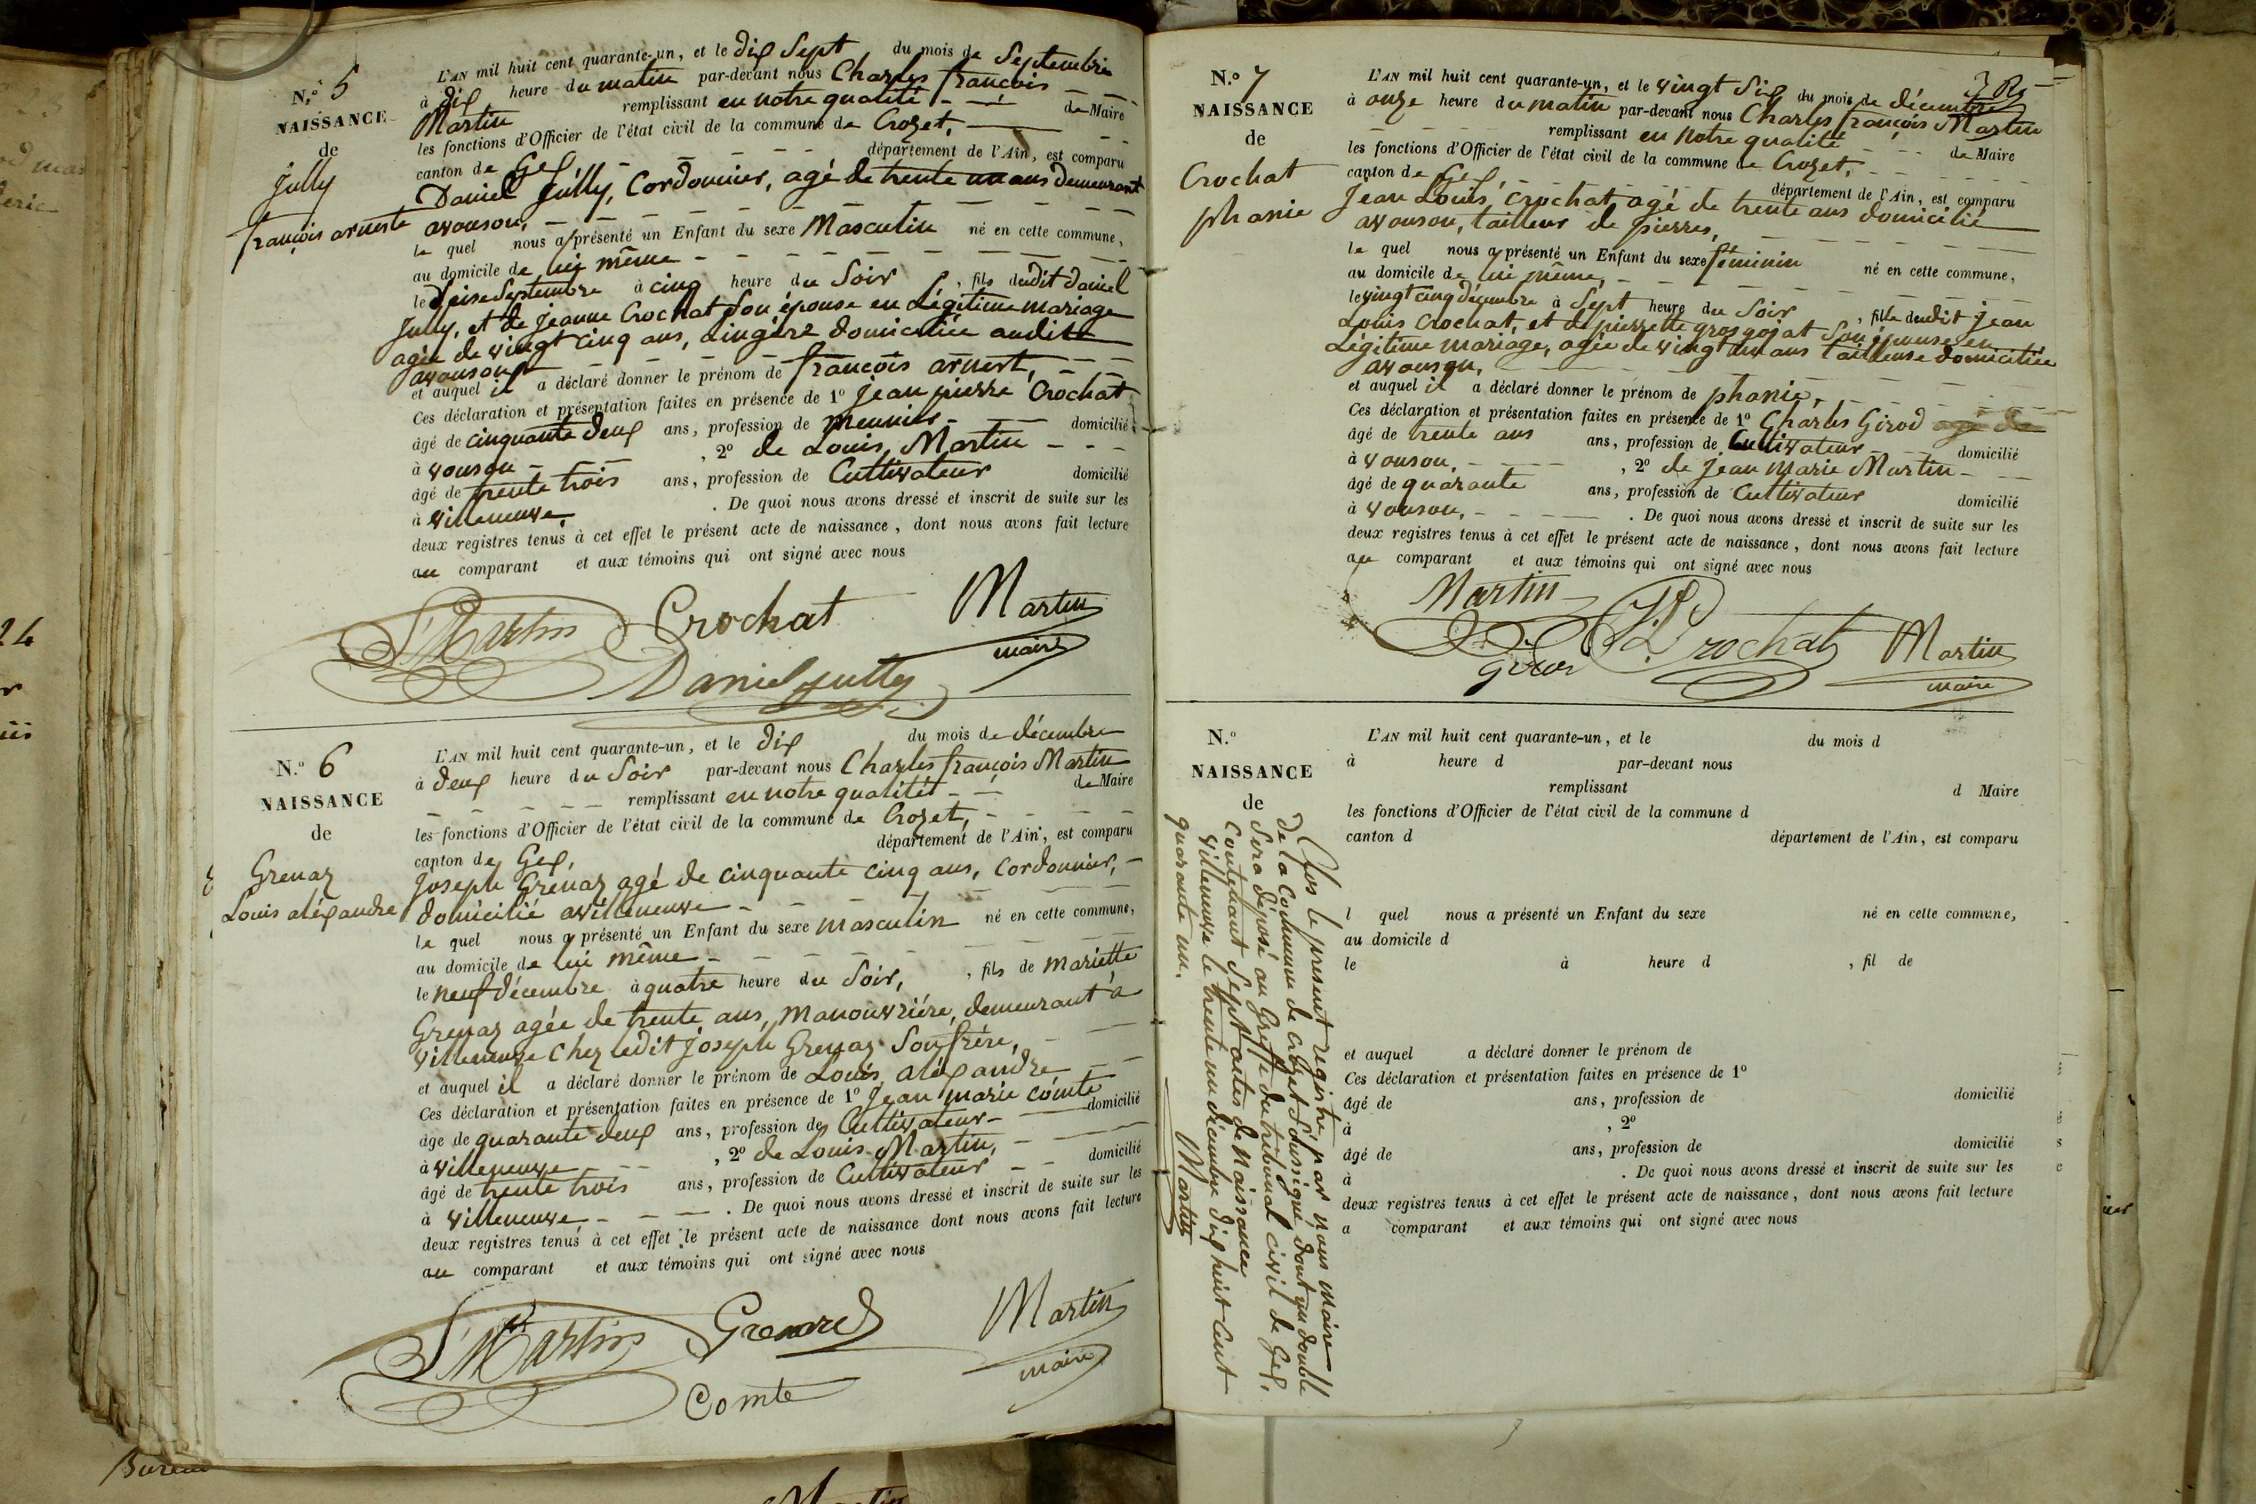 N.º 5
NAISSANCE
de
Jully
françois arnerte
L'AN mil huit cent quarante-un, et le dix Sept du mois de Septembre
à dix heure du matin par-devant nous Charles françois
Martin remplissant en notre qualité de Maire
les fonctions d'Officier de l'état civil de la commune de Crozet,
canton de Gex département de l'Ain, est comparu
Daniel Jully, Cordonnier, agé de trente un ans demeurant
avouson,
le quel nous a présenté un Enfant du sexe Masculin né en cette commune,
au domicile de lui même
le Seise Septembre à cinq heure du Soir, fils dudit Daniel
Jully, et de jeanne Crochat Son épouse en Légitime mariage
agée de vingt cinq ans, Lingère domiciliée audit
avouson
et auquel il a déclaré donner le prénom de françois arnert,
Ces déclaration et présentation faites en présence de 1º jean pierre Crochat
âgé de cinquante deux ans, profession de meunier domicilié
à vouson, 2º de Louis Martin
âgé de trente trois ans, profession de Cultivateur domicilié
à villeneuve, . De quoi nous avons dressé et inscrit de suite sur les
deux registres tenus à cet effet le présent acte de naissance, dont nous avons fait lecture
au comparant et aux témoins qui ont signé avec nous
Martin Crochat Martin
maire
Daniel jully
N.º 6
NAISSANCE
de
Grenaz
Louis aléxandre
L'AN mil huit cent quarante-un, et le dix du mois de décembre
à deux heure du Soir par-devant nous Charles françois Martin
remplissant en notre qualitét de Maire
les fonctions d'Officier de l'état civil de la commune de Crozet,
canton de Gex, département de l'Ain, est comparu
Joseph Grénaz agé de cinquante cinq ans, Cordonnier,
domicilié avilleneuve
le quel nous a présenté un Enfant du sexe masculin né en cette commune,
au domicile de lui même
le neuf décembre à quatre heure du Soir, , fils de mariette
Grenaz agée de trente ans, Manouvriére, demeurant à
villeneuve chez ledit joseph Grenaz Son frère,
et auquel il a déclaré donner le prénom de Louis aléxandre
Ces déclaration et présentation faites en présence de 1º jean marie comte
âge de quarante deux ans, profession de Cultivateur domicilié
à villeneuve , 2º de Louis Martin,
âgé de trente trois ans, profession de Cultivateur domicilié
à villeneuve . De quoi nous avons dressé et inscrit de suite sur les
deux registres tenus à cet effet le présent acte de naissance dont nous avons fait lecture
au comparant et aux témoins qui ont signé avec nous
Martin Grenard Martin
maire
Comte
N.º 7
NAISSANCE
de
Crochat
phanie
L'AN mil huit cent quarante-un, et le vingt Six du mois de décembre
à onze heure du matin par-devant nous Charles françois Martin
remplissant en notre qualité de Maire
les fonctions d'Officier de l'état civil de la commune de Crozet,
canton de Gex, département de l'Ain, est comparu
Jean Louis, crochat agé de trente ans domicilié
avouson, tailleur de pierres,
le quel nous a présenté un Enfant du sexe féminin né en cette commune,
au domicile de lui même,
le vingt cinq décembre à Sept heure du Soir, fille dudit jean
Louis Crochat, et de pierrette grosgojat Son épouse en
Légitime mariage, agée de vingt un ans tailleuse domiciliée
avouson,
et auquel il a déclaré donner le prénom de phanie,
Ces déclaration et présentation faites en présence de 1º Charles Girod
âgé de trente ans ans, profession de Cultivateur domicilié
à vouson, , 2º de jean marie Martin
âgé de quarante ans, profession de Cultivateur domicilié
à vouson, . De quoi nous avons dressé et inscrit de suite sur les
deux registres tenus à cet effet le présent acte de naissance, dont nous avons fait lecture
au comparant et aux témoins qui ont signé avec nous
Martin Crochat Martin
girod maire
N.º
NAISSANCE
de
L'AN mil huit cent quarante-un, et le du mois d
à heure d par-devant nous
remplissant d Maire
les fonctions d'Officier de l'état civil de la commune d
canton d département de l'Ain, est comparu
l quel nous a présenté un Enfant du sexe né en cette commune,
au domicile d
le à heure d , fil de
et auquel a déclaré donner le prénom de
Ces déclaration et présentation faites en présence de 1º
âgé de ans, profession de domicilié
à , 2º
âgé de ans, profession de domicilié
à . De quoi nous avons dressé et inscrit de suite sur les
deux registres tenus à cet effet le présent acte de naissance, dont nous avons fait lecture
a comparant et aux témoins qui ont signé avec nous
Clos le présent registre, par nous maire
de la Commune de crozet Soussigné dont un double
Sera déposé au Greffe du tribunal civil de Gex,
contenant Sept actes de Naissance
villeneuve le trente un décembre dix huit cent
quarante un.
Martin